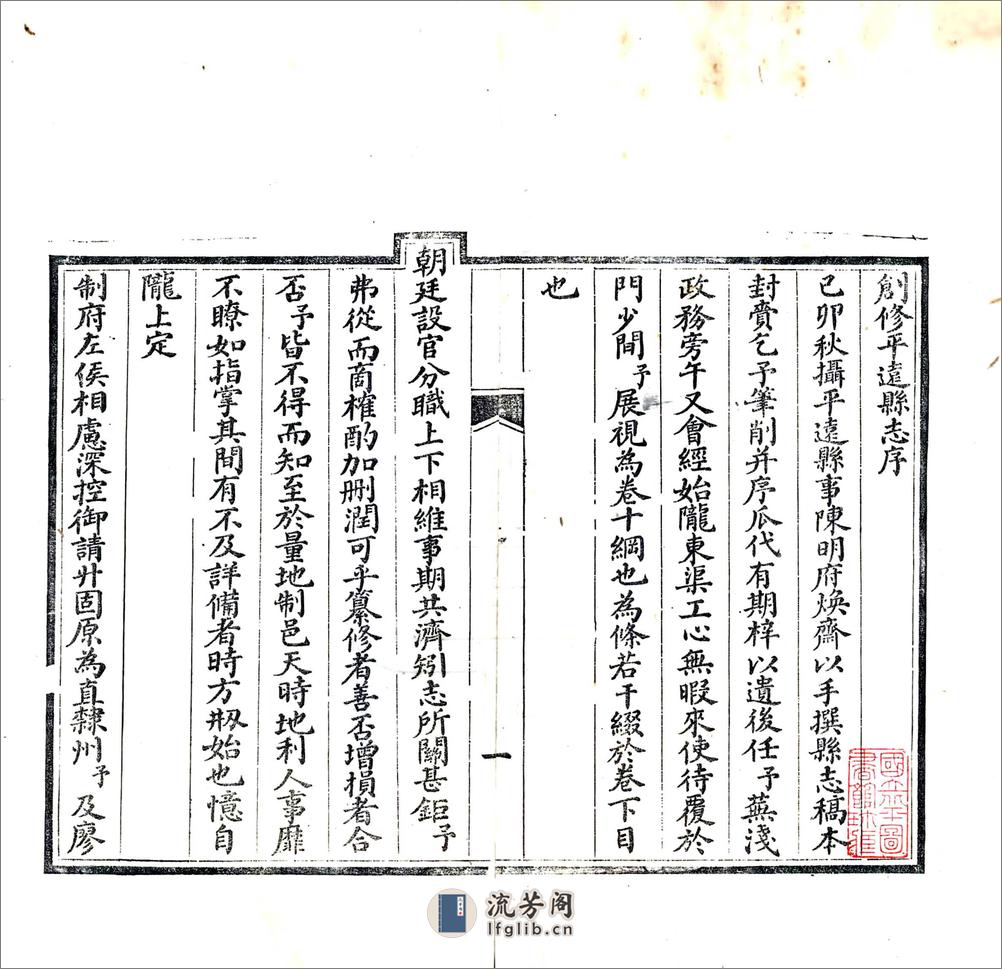 創修平遠縣志序
己卯秋攝平遠縣事陳明府煥齋以手撰縣志稿本
封賫乞予筆削并序瓜代有期梓以遺後任予蕪淺
政務旁午又會經始隴東渠工心無暇來使待覆於
門少間予展視為卷十綱也為條若干綴於卷下目
也
朝廷設官分職上下相維事期共濟矧志所關甚鉅予
弗從而商榷酌加刪潤可乎纂修者善否增損者合
否予皆不得而知至於量地制邑天時地利人事靡
不瞭如指掌其間有不及詳備者時方刱始也憶自
隴上定
制府左侯相慮深控御請升固原為直隸州予及廖
一
流芳阁
lfglib.cn